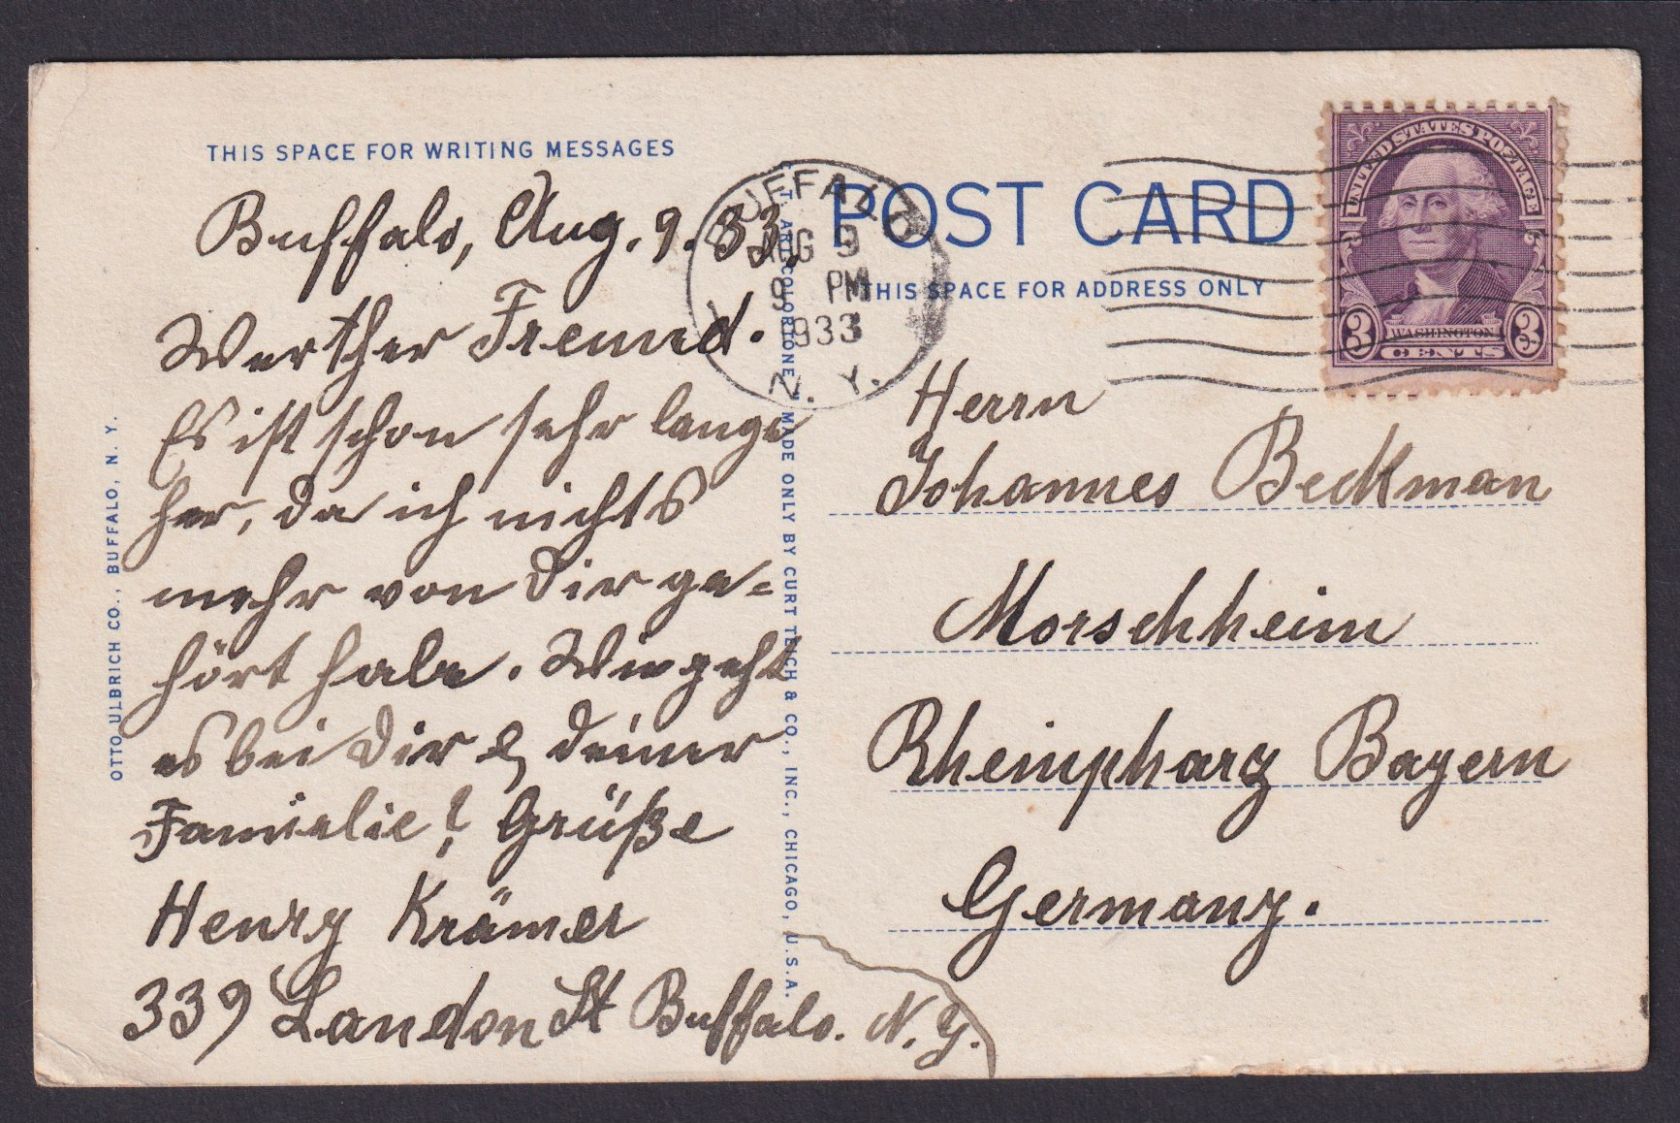 THIS SPACE FOR WRITING MESSAGES
Buffalo, Aug. 9. 33.
Werther Freund.
Es ist schon sehr lange
her, da ich nichts
mehr von Dir ge=
hört habe. Wie geht
es bei Dir & deiner
Famielie? Grüße
Henry Krämer
339 Landon St Buffalo. N. Y.
OTTO ULBRICH CO., BUFFALO, N. Y.
C. T. ART COLORTONE MADE ONLY BY CURT TEICH & CO., INC., CHICAGO, U.S.A.
BUFFALO
AUG 9
9 PM
1933
N. Y.
POST CARD
THIS SPACE FOR ADDRESS ONLY
UNITED STATES POSTAGE
3 WASHINGTON 3
CENTS
Herrn
Johannes Beckman
Morschheim
Rheinpharz Bayern
Germany.